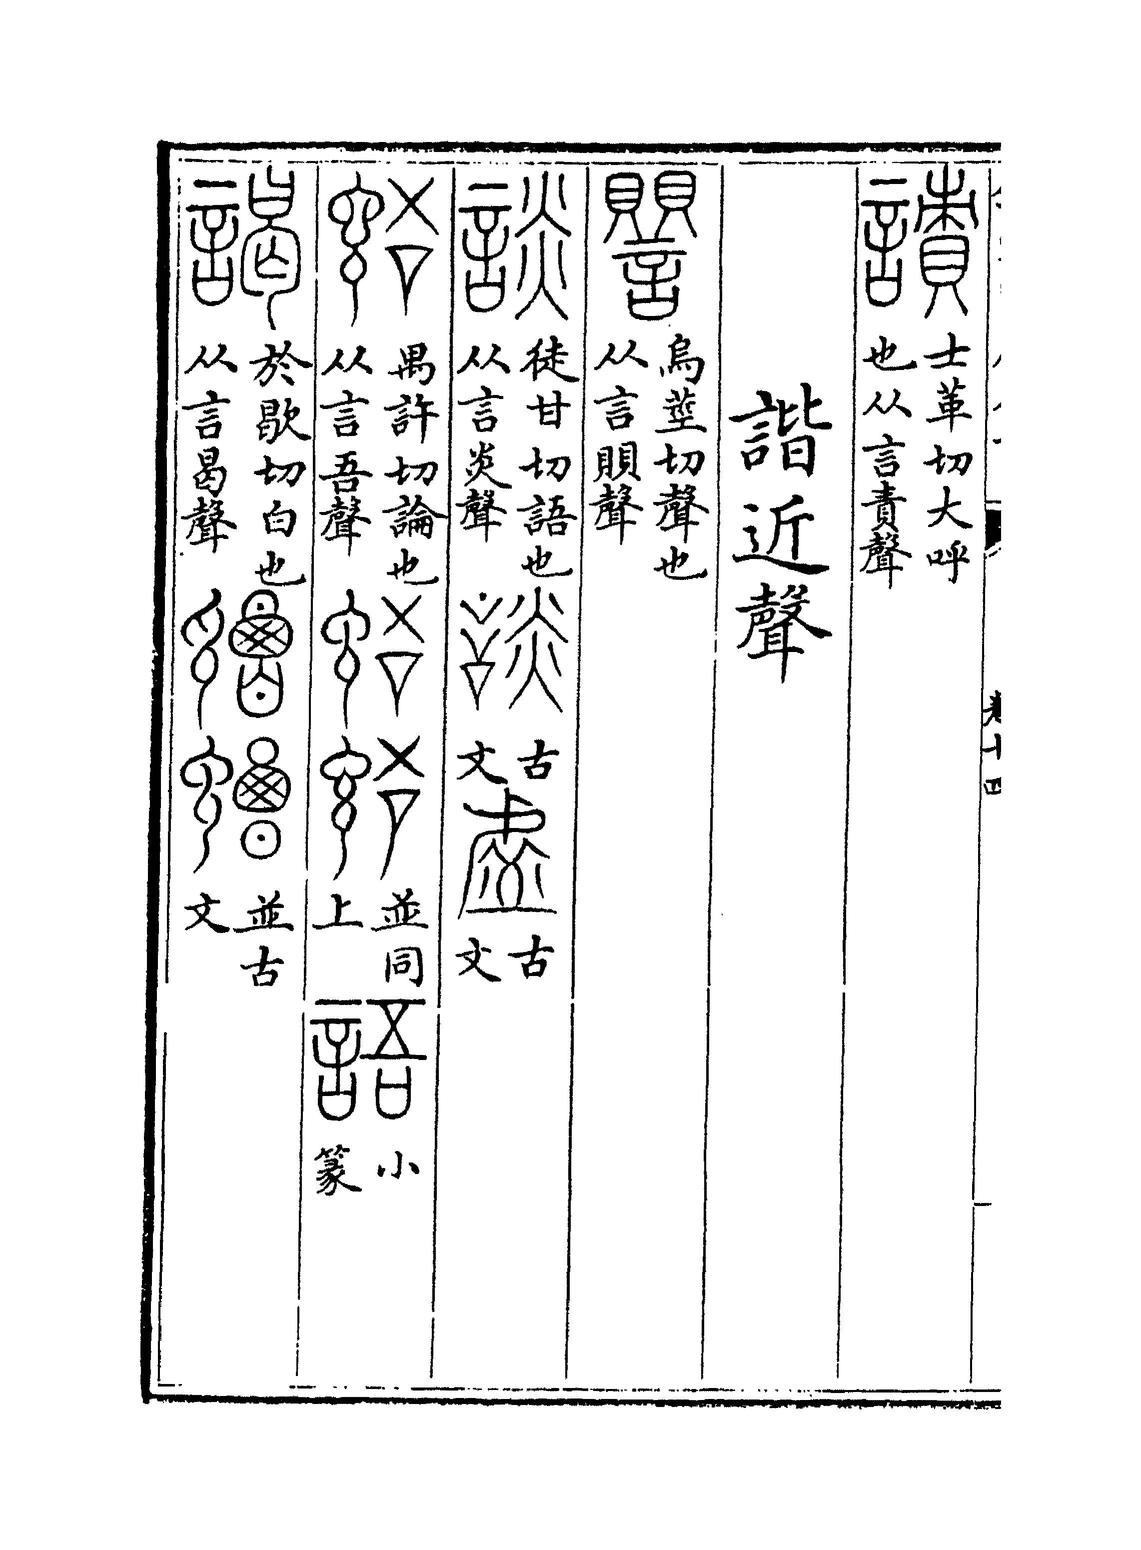 謮士革切大呼也从言責聲
諧近聲
譻烏莖切聲也从言賏聲
談徒甘切語也从言炎聲談古文 古文
語禺許切論也从言吾聲語語並同上語小篆
謁於歇切白也从言曷聲謁謁並古文
卷十四